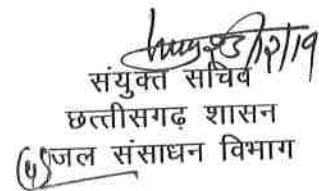 12/19
संयुक्त सचिव
छत्तीसगढ़ शासन
(४)जल संसाधन विभाग